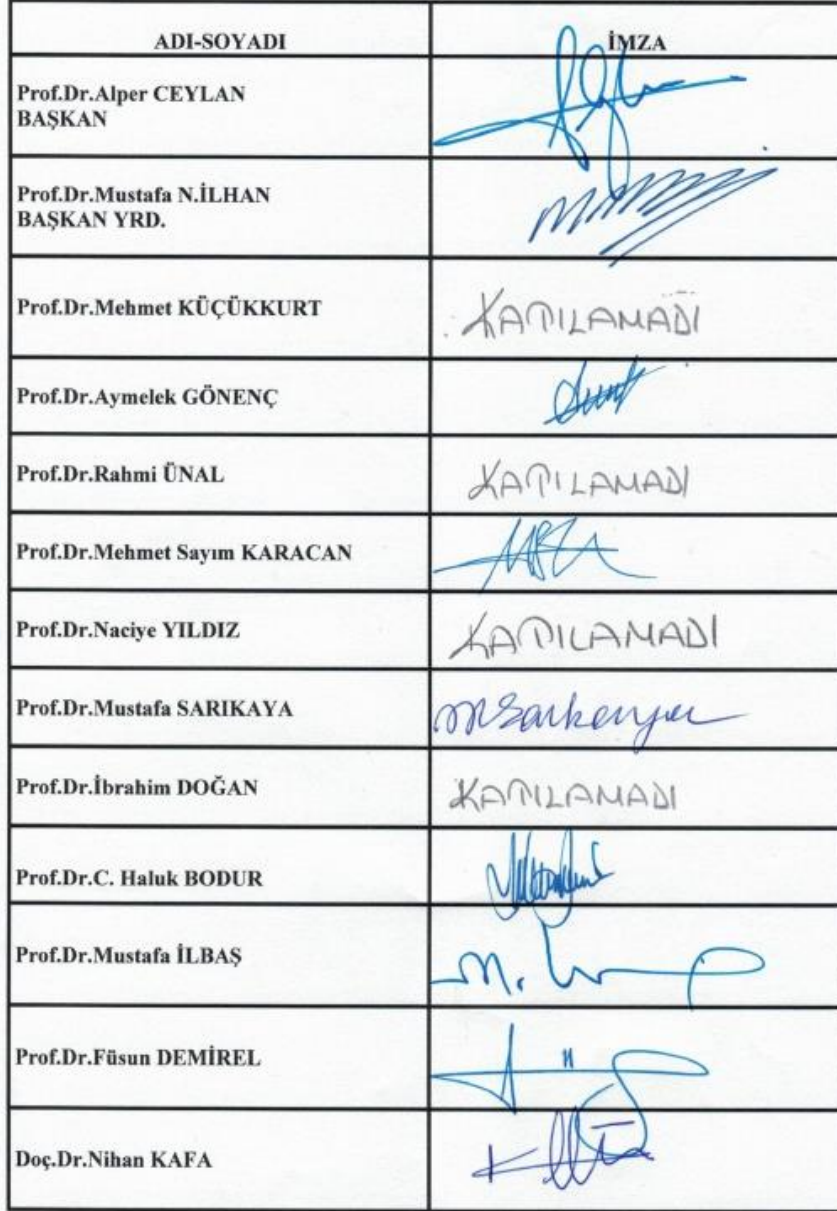 ADI-SOYADI İMZA
Prof.Dr.Alper CEYLAN
BAŞKAN
Prof.Dr.Mustafa N.İLHAN
BAŞKAN YRD.
Prof.Dr.Mehmet KÜÇÜKKURT KATILAMADI
Prof.Dr.Aymelek GÖNENÇ
Prof.Dr.Rahmi ÜNAL KATILAMADI
Prof.Dr.Mehmet Sayım KARACAN
Prof.Dr.Naciye YILDIZ KATILAMADI
Prof.Dr.Mustafa SARIKAYA
Prof.Dr.İbrahim DOĞAN KATILAMADI
Prof.Dr.C. Haluk BODUR
Prof.Dr.Mustafa İLBAŞ
Prof.Dr.Füsun DEMİREL
Doç.Dr.Nihan KAFA